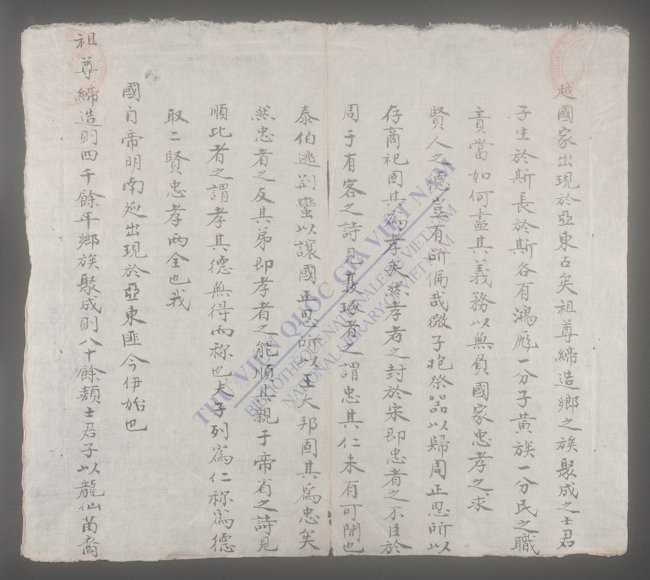 越國家出現於亞東古矣祖尊締造鄉之族聚成之士君
子生於斯長於斯谷有鴻厖一分子黃族一分民之職
責當如何盡其義務以無負國家忠孝之求
賢人之德豈有所偏哉微子抱祭器以歸周正思所以
存商祀固其為孝矣然孝者之封於宋即忠者之不臣於
周于有客之詩見琢者之謂忠其仁未有可閒也
泰伯逃蠻以讓國正思所以王大邦固其為忠矣
然忠者之友其弟即孝者之能順其親于帝省之詩見
順比者之謂孝其德無得而称也夫子列為仁称為德
取二賢忠孝兩全也哉
國自帝明南廵出現於亞東匪今伊始也
祖尊締造則四千餘年鄉族聚成則八十餘類士君子以龍仙苗裔
THƯ VIỆN QUỐC GIA VIỆT NAM
BIBLIOTHÈQUE NATIONALE DU VIETNAM
NATIONAL LIBRARY OF VIETNAM